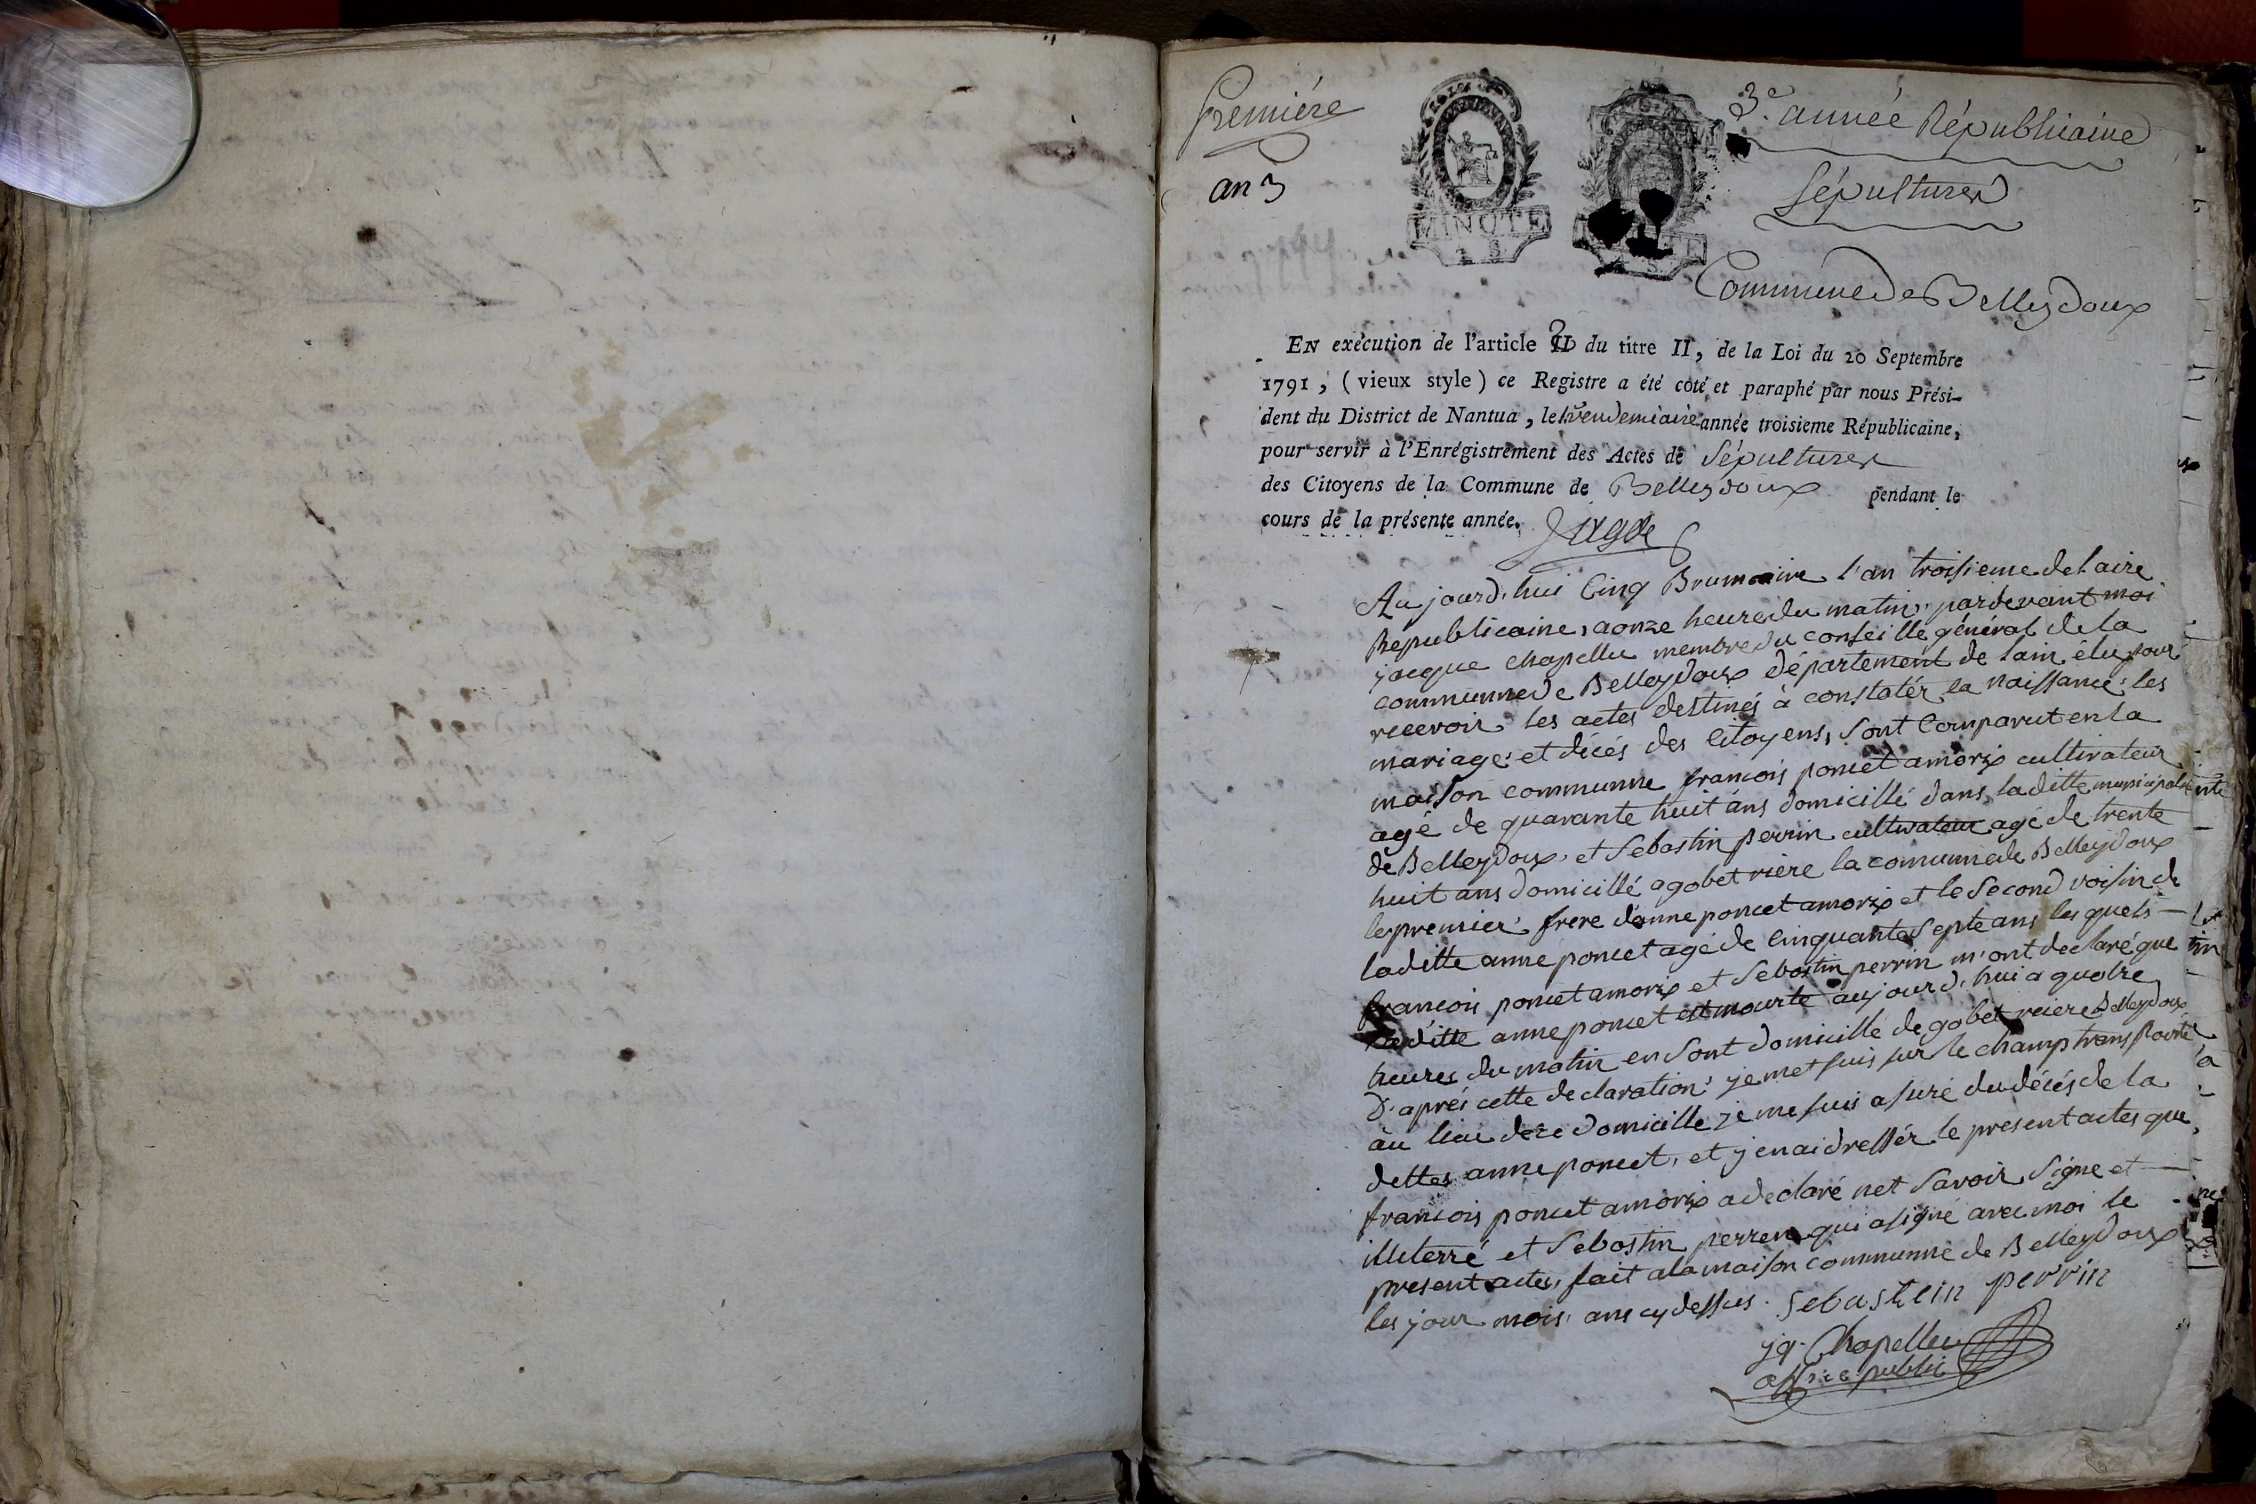 Premiére
an 3
MINUTE
3e. année Républicaine
Sépultures
Commune de Belleydoux
EN exécution de l'article II du titre II, de la Loi du 20 Septembre
1791, (vieux style) ce Registre a été coté et paraphé par nous Prési-
dent du District de Nantua, le vendemiaire année troisieme Républicaine,
pour servir à l'Enrégistrement des Actes de Sépultures
des Citoyens de la Commune de Belleydoux pendant le
cours de la présente année.
Jagot
Aujourd'hui Cinq Brumaire l'an troisieme de l'aire
Republicaine, a onze heures du matin, pardevant moi
jacque chapellu membre du conseille général de la
communne de Belleydoux département de lain élu pour
recevoir les actes destinés à constatér la naissance, les
mariage, et décés des Citoyens, sont Comparut en la
maison communne francois poncet amorix cultivateur
agé de quarante huit ans domicillé dans laditte municipalité
de Belleydoux, et Sebastin perrin cultivateur agé de trente
huit ans domicillé a gobet riere la comunne de Belleydoux
le premier frere d'anne poncet amorix et le Second voisin de
laditte anne poncet agé de Cinquante Septe ans les quels
francois poncet amorix et Sebastin perrin m'ont declaré que
laditte anne poncet est mourte aujourd'hui a quatre
heures du matin en Sont domicille de gobet reiere Belleydoux
D'aprés cette declaration, je met suis sur le champ transporté
au lieu de ce domicille je me suis asuré du décés de la
dettes anne poncet, et j'en ai dressér le present actes que
francois poncet amorix a declaré net Savoir Signe et
illiterré et Sebastin perren qui a signé avec moi le
present actes, fait a la maison communne de Belleydoux
les jour mois ans cy dessus. Sebastein perrin
jq. Chapellu
offics public